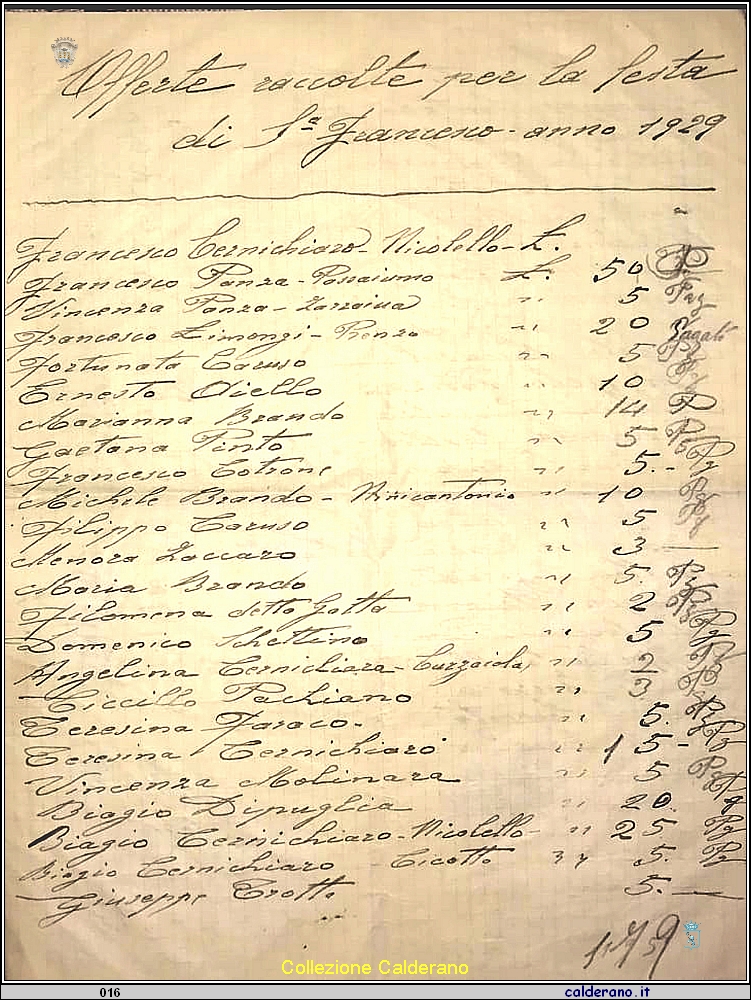 Offerte raccolte per la festa
di S.n Francesco - anno 1929
Francesco Cernichiaro - Nicolello - L.
Francesco Panza - L. 50
Vincenza Panza - " 5 Pag
Francesco Limongi - Renzo " 20 Pagato
Fortunata Caruso " 5
Ernesto Aiello " 10
Marianna Brando " 14 P
Gaetana Pinto " 5 Pg
Francesco Cotrone " 5.- Pg
Michele Brando - " 10 Pg
Filippo Caruso " 5 Pg
Menora Zaccaro " 3 —
Maria Brando " 5. Pg
Filomena detta Gatta " 2 Pg
Domenico Schettino " 5 Pg
Angelina Cernichiara - " 2 Pg
Ciccillo Pachiano " 3 Pg
Teresina Faraco - " 5. Pg
Teresina Cernichiaro " 15 - Pg
Vincenza Molinara " 5 Pg
Biagio Dipuglia " 20. Pg
Biagio Cernichiaro - Nicolello - " 25 Pg
Biagio Cernichiaro - Cicotto " 5. Pg
Giuseppe Trotta 5. —
Collezione Calderano
016
calderano.it